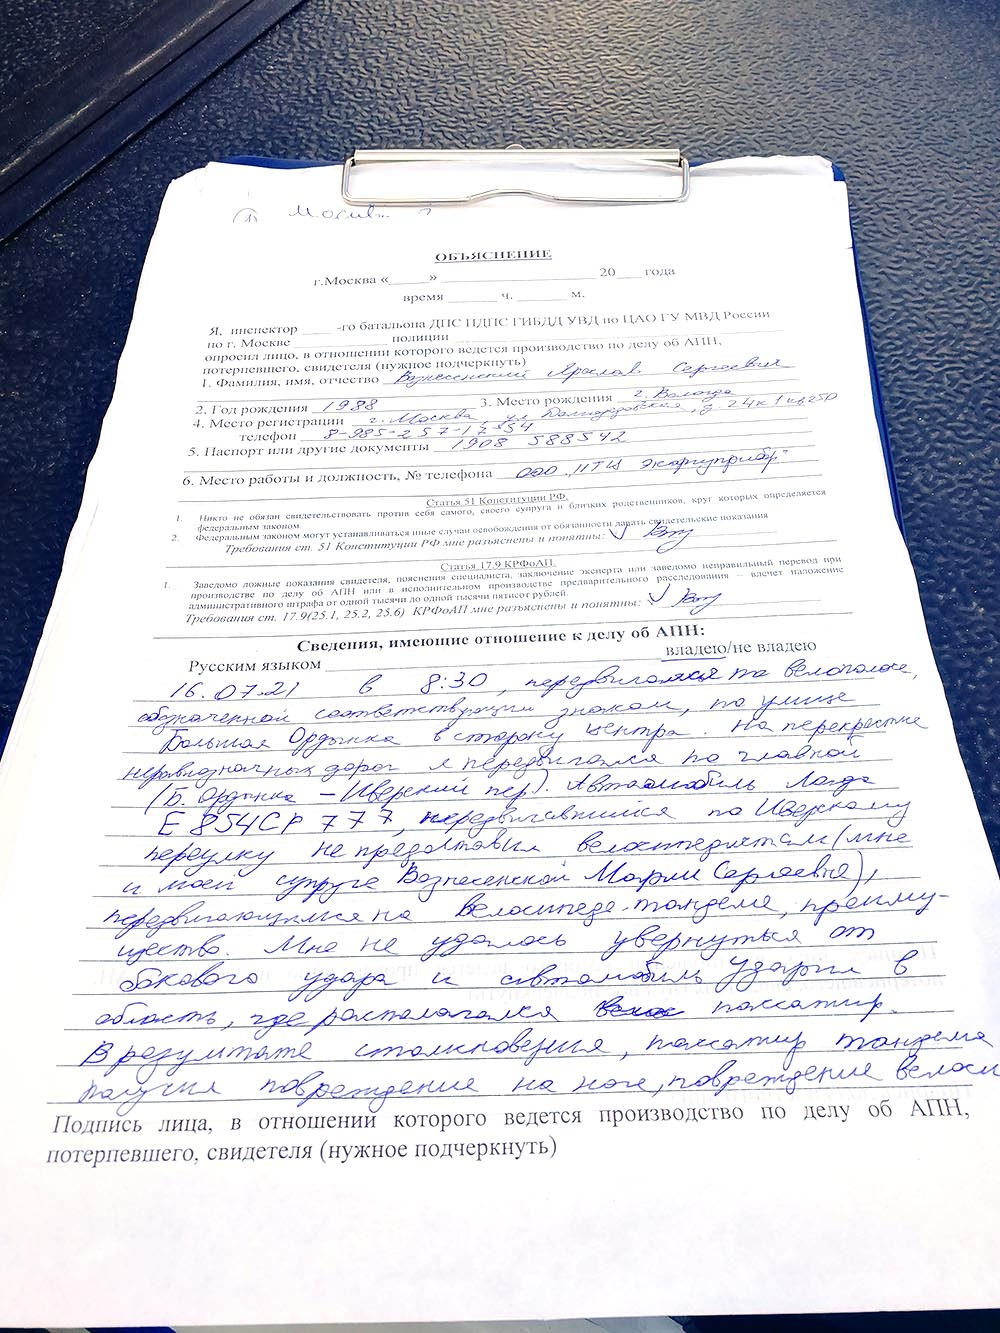 Москв
ОБЪЯСНЕНИЕ
г.Москва «_____» ____________________ 20___ года
время ______ ч. ______ м.
Я, инспектор _____ -го батальона ДПС ПДПС ГИБДД УВД по ЦАО ГУ МВД России
по г. Москве ____________ полиции ____________
опросил лицо, в отношении которого ведется производство по делу об АПН,
потерпевшего, свидетеля (нужное подчеркнуть)
1. Фамилия, имя, отчество Вознесенский Ярослав Сергеевич
2. Год рождения 1988 3. Место рождения г. Вологда
4. Место регистрации г. Москва, ул. д. 24 к 1 кв 250
телефон 8-985-257-12-54
5. Паспорт или другие документы 1908 588542
6. Место работы и должность, № телефона ООО „НТЦ Экофизприбор"
Статья 51 Конституции РФ.
1. Никто не обязан свидетельствовать против себя самого, своего супруга и близких родственников, круг которых определяется
федеральным законом.
2. Федеральным законом могут устанавливаться иные случаи освобождения от обязанности давать свидетельские показания
Требования ст. 51 Конституции РФ мне разъяснены и понятны:
Статья 17.9 КРФоАП.
1. Заведомо ложные показания свидетеля, пояснения специалиста, заключение эксперта или заведомо неправильный перевод при
производстве по делу об АПН или в исполнительном производстве предварительного расследования – влечет наложение
административного штрафа от одной тысячи до одной тысячи пятисот рублей.
Требования ст. 17.9(25.1, 25.2, 25.6) КРФоАП мне разъяснены и понятны:
Сведения, имеющие отношение к делу об АПН:
Русским языком ____________ владею/не владею
16.07.21 в 8:30, передвигался по велополосе,
обозначенной соответствующим знаком, по улице
Большая Ордынка в сторону центра. На перекрестке
неравнозначных дорог я передвигался по главной
(Б. Ордынка – Иверский пер). Автомобиль Лада
Е 854СР 777, передвигавшийся по Иверскому
переулку не предоставил велосипедистам (мне
и моей супруге Вознесенской Марии Сергеевне),
передвигающимся на велосипеде-тандеме, преиму-
щество. Мне не удалось увернуться от
бокового удара и автомобиль ударил в
область, где располагался пассажир.
В результате столкновения, пассажир тандема
получил повреждение на ноге, повреждение велоси
Подпись лица, в отношении которого ведется производство по делу об АПН,
потерпевшего, свидетеля (нужное подчеркнуть)